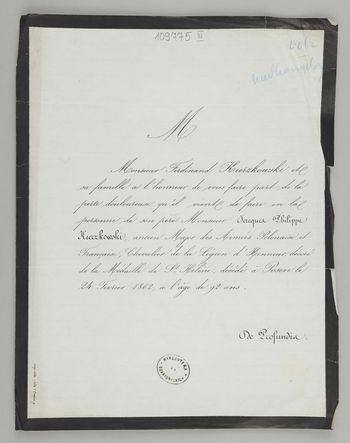 109775 III
M
Monsieur Ferdinand Kierzkowski et
sa famille a l'honneur de vous faire part de la
perte douloureuse qu'il vient de faire en la
personne de son père Monsieur Jacques Philippe
Kierzkowski, ancien Major des Armées Polonaise et
Française, Chevalier de la Légion d'Honneur, décoré
de la Médaille de Ste Hélène, décédé à Posen le
24 Février 1862, à l'âge de 92 ans.
De Profundis.